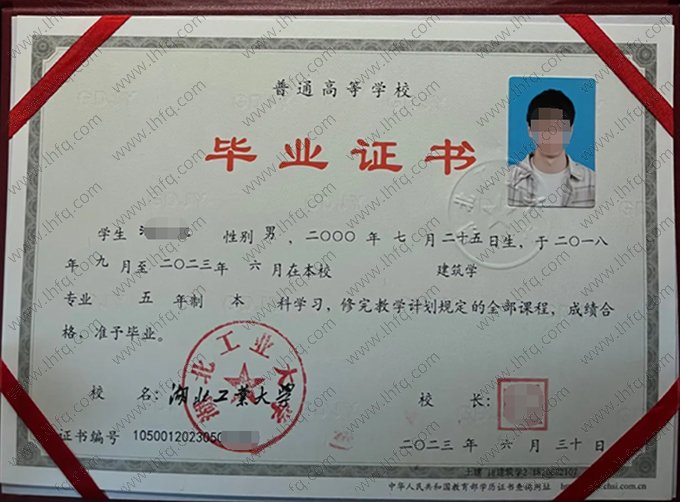 普通高等学校
毕业证书
学生 性别 男 , 二〇〇〇 年 七 月 二十五日生, 于二〇一八
年 九 月至 二〇二三年 六 月在本校 建筑学
专业 五 年制 本 科学习, 修完教学计划规定的全部课程, 成绩合
格, 准予毕业。
湖北工业大学
校 名: 湖北工业大学 校 长:
证书编号 1050012023050
二〇二三 年 六 月 三十日
中华人民共和国教育部学历证书查询网址
www.lhfq.com